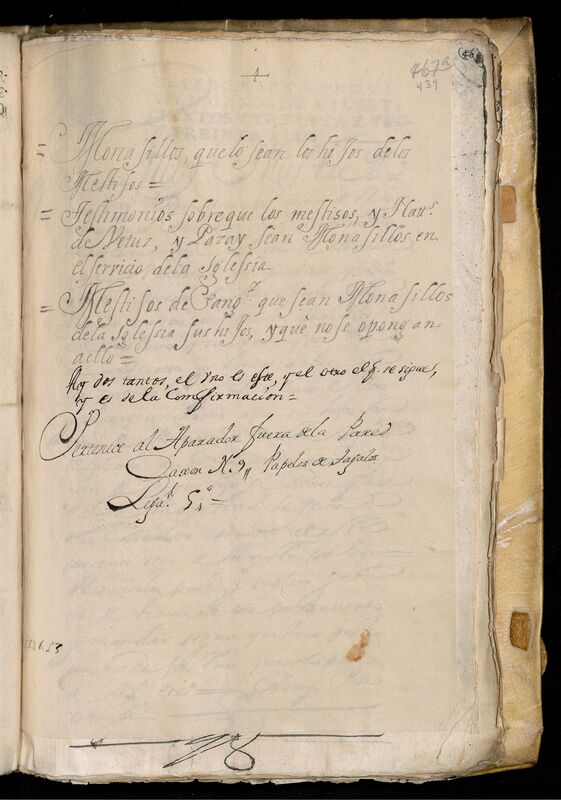 4673
439
= Monasillos, que lo sean los hijos de los
Mestisos =
= Testimonios sobre que los mestisos, y Natu.s
de Netuz, y Pazay sean Monasillos en
el servicio dela Iglessia
= Mestisos de que sean Monasillos
dela Iglessia sus hijos, y que no se opongan
aello =
Ay dos tantos, el vno es este, y el otro el q. se sigue,
y es de la Comfirmacion =
Pertenece al Aparador fuera de la Pared
Caxon N. 9,, Papeles de
Lega.º 5,,º =